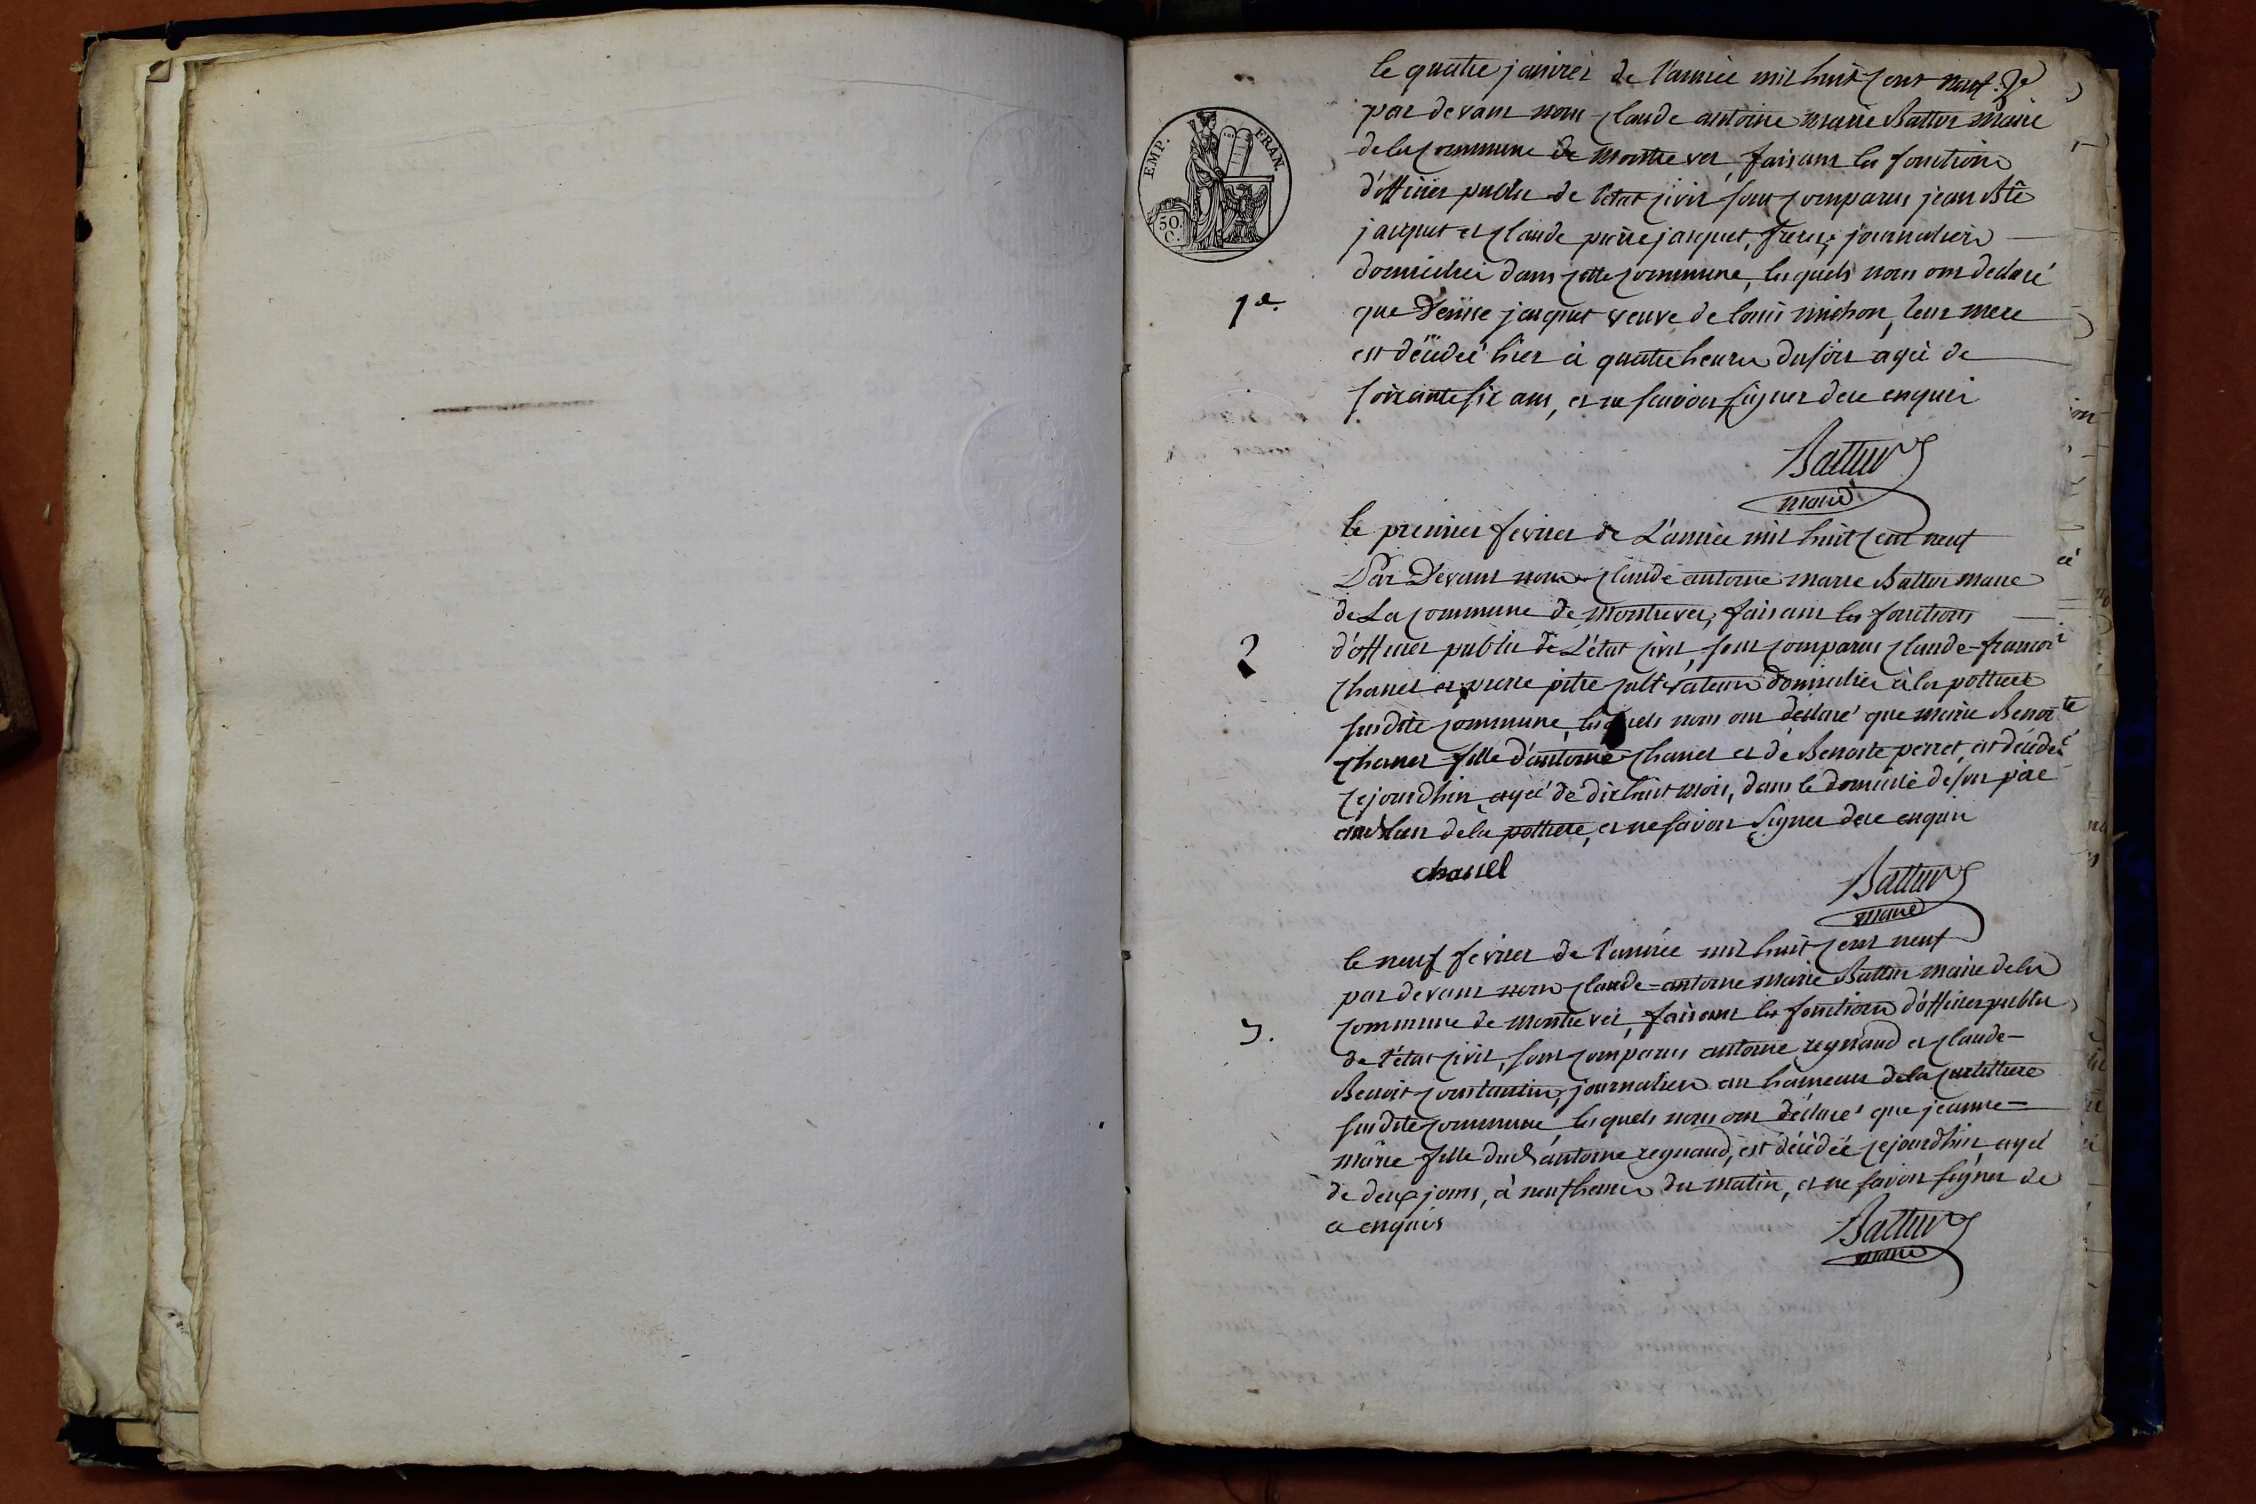 EMP. FRAN.
50.
C.
le quatre janvier de l'année mil huit cent neuf
par devant nous claude antoine marie Battur maire
de la commune de montrever, faisant les fonctions
d'officier public de l'état civil sont comparus jean Bte
jacquet et claude pierre jacquet, freres, journaliers
domiciliés dans cette commune, lesquels nous ont declaré
1er
que denise jacquet veuve de louis michon, leur mere
est décédée hier à quatre heures du soir agée de
soixante six ans, et ne scavoir signer de ce enquis
Battur
maire
le premier fevrier de L'année mil huit cent neuf
Par Devant nous claude antoine marie Battur maire
de La commune de montrever, faisant les fonctions
2
d'officier public de L'état civil, sont comparus claude-francois
chanel et pierre pitre cultivateurs domiciliés à la pottiere
susdite commune, lesquels nous ont déclaré que marie Benoite
chanel fille d'antoine chanel et de Benoite perret, est décédée
cejourdhui agée de dix huit mois, dans le domicile de son père
de la pottiere, et ne savoir signer de ce enquis
chanel
Battur
maire
le neuf fevrier de l'année mil huit cent neuf
par devant nous claude-antoine marie Battur maire de la
commune de montrever, faisant les fonctions d'officier public
3.
de l'état civil, sont comparus antoine regnaud et claude-
Benoit constantin, journaliers au hameau de la
susdite commune, lesquels nous ont déclaré que jeanne-
marie fille dud antoine regnaud, est décédée cejourdhui, agée
de deux jours, à neuf heures du matin, et ne savoir signer de
ce enquis
Battur
maire